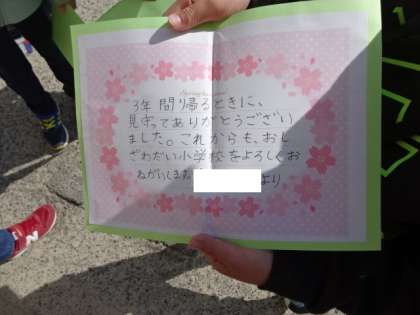 3年間帰るときに、
見守ってありがとうござい
ました。これからも、おし
ざわだい小学校をよろしくお
ねがいします。
より